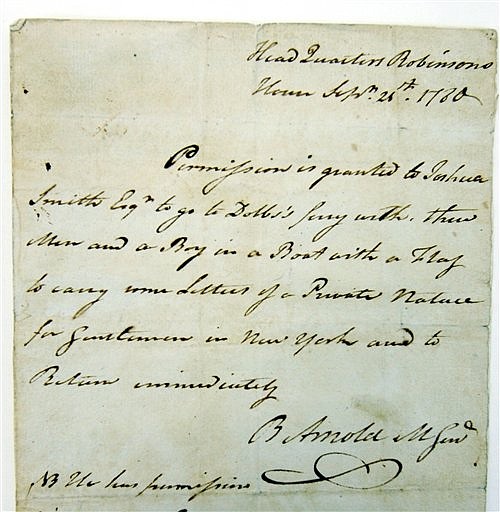 Head Quarters Robinsons
House Sepr. 21th. 1780
Permission is granted to Joshua
Smith Esqr to go to Dobbs's ferry with three
Men and a Boy in a Boat with a Flag
to carry some Letters of a Private Nature
for Gentlemen in New York and to
Return immediately
B Arnold M Genl
NB He has permission